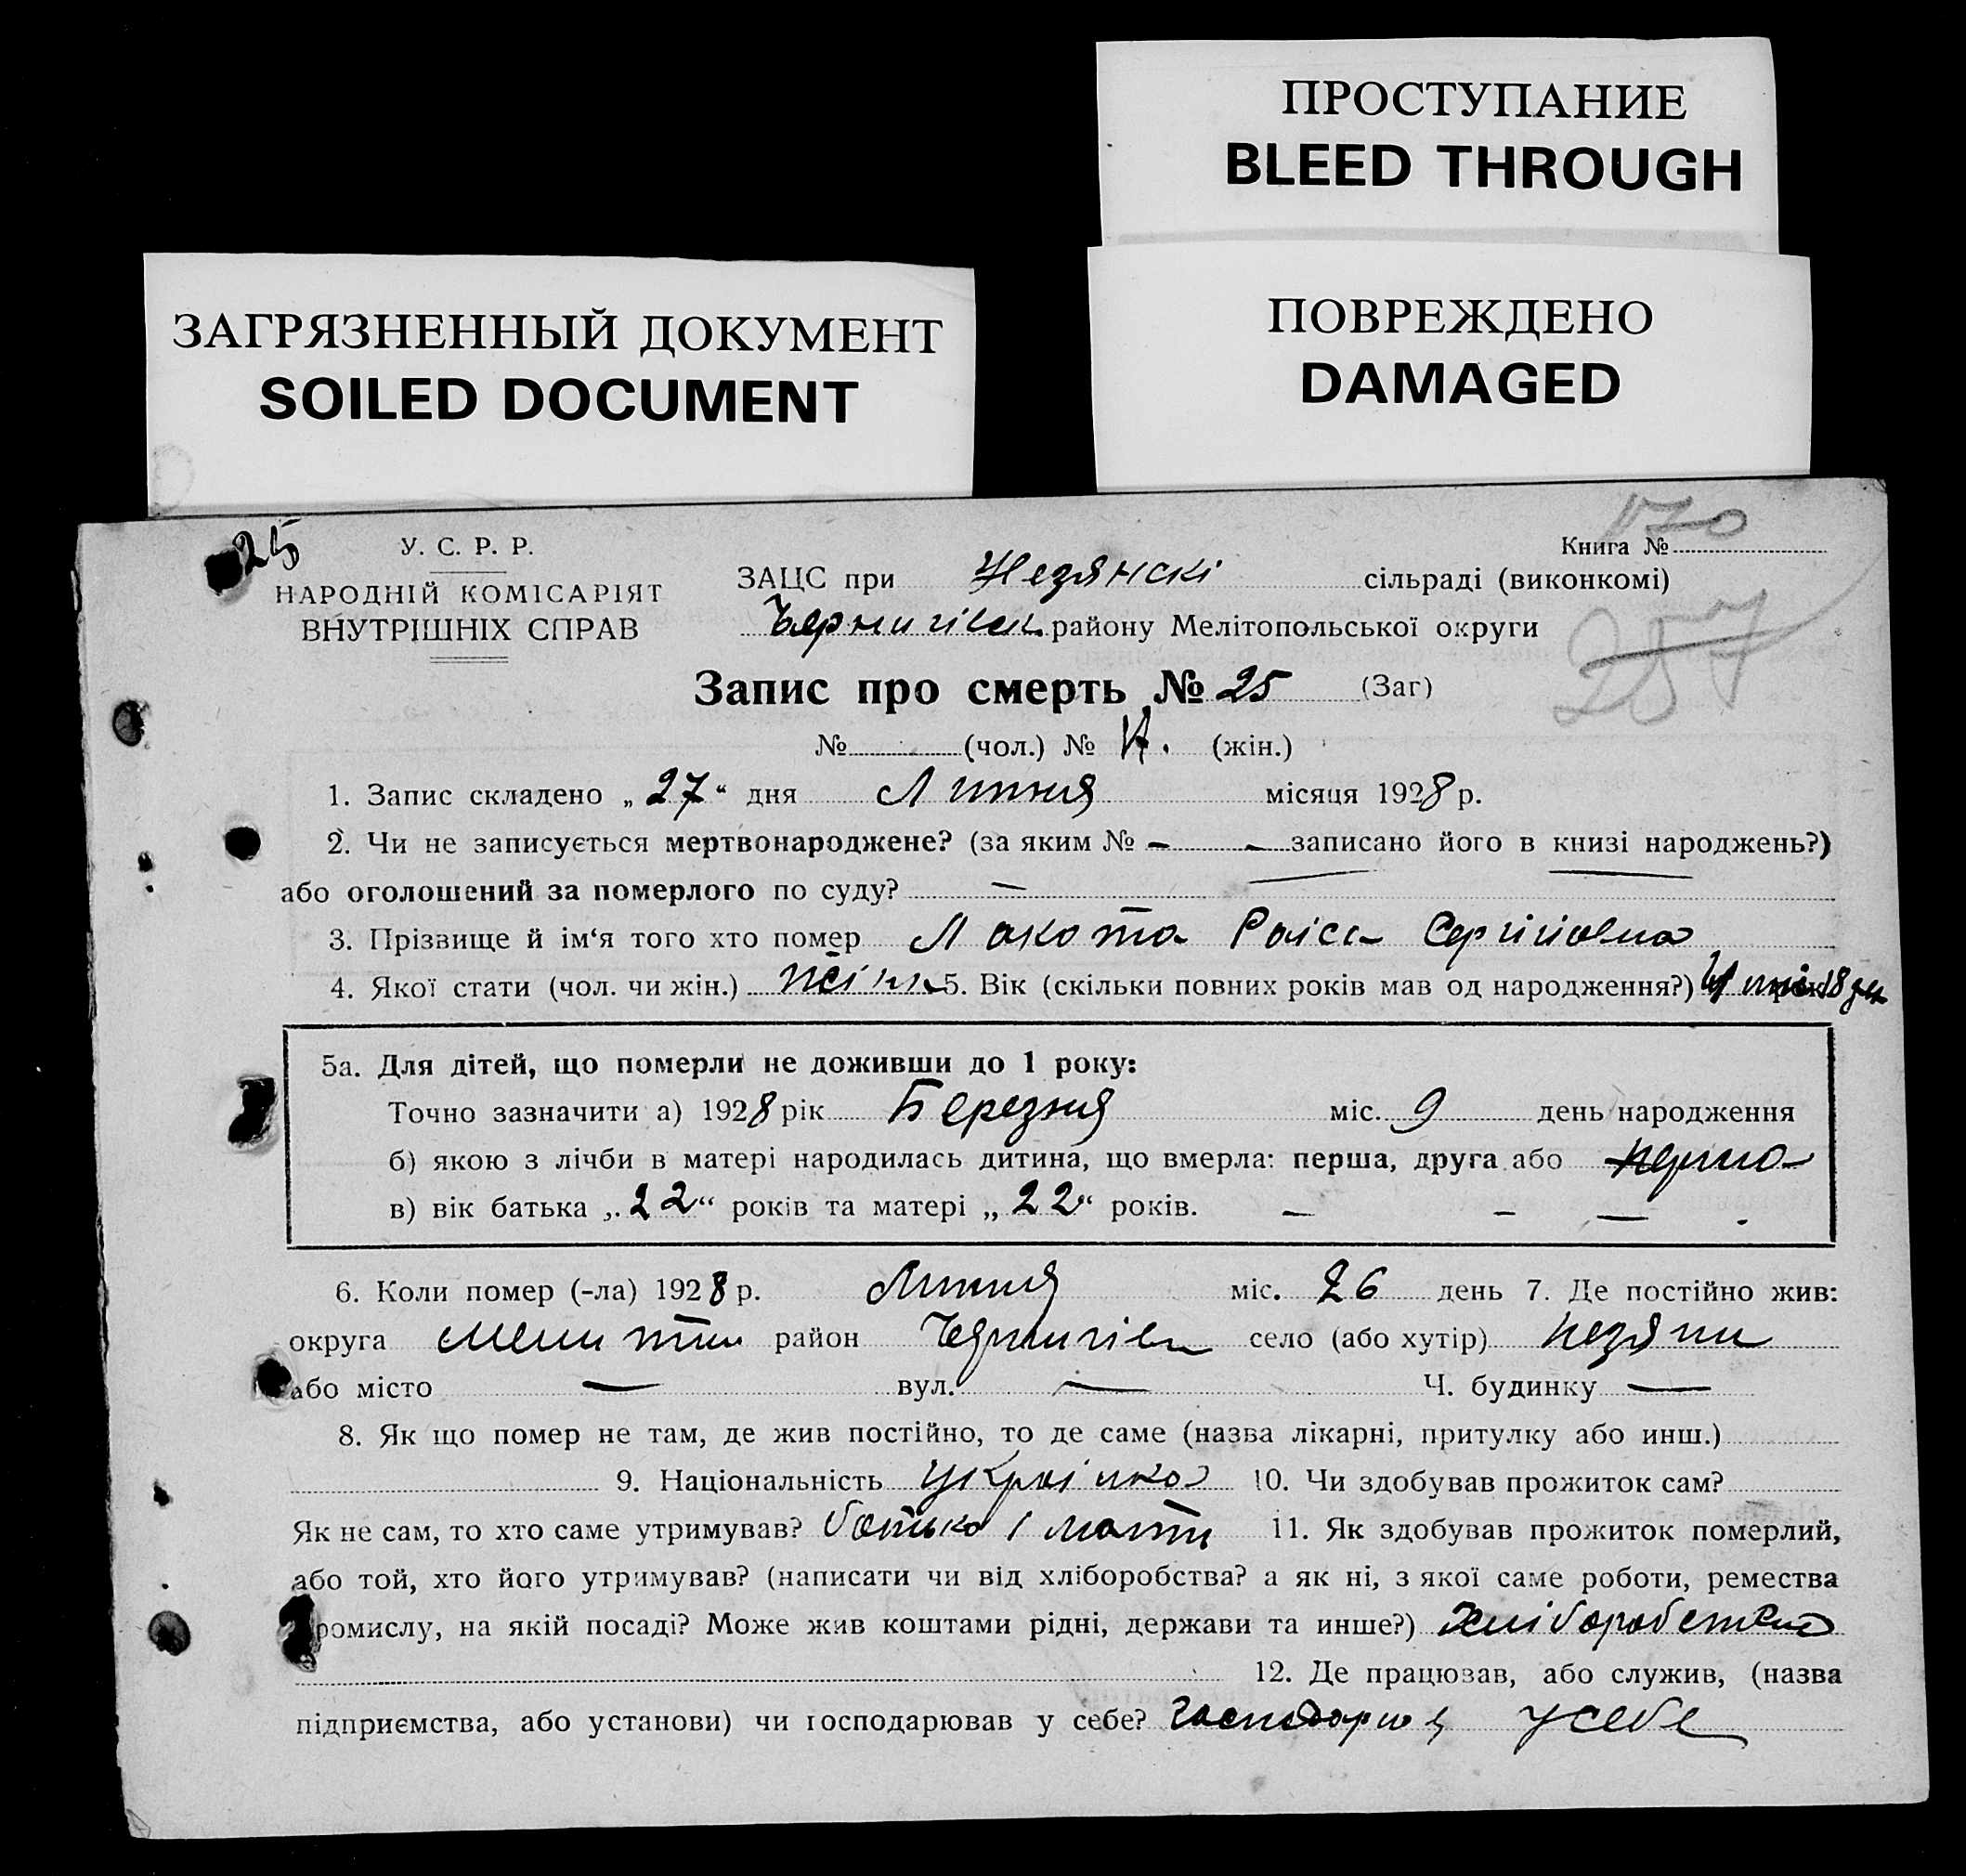 ПРОСТУПАНИЕ
BLEED THROUGH
ЗАГРЯЗНЕННЫЙ ДОКУМЕНТ
SOILED DOCUMENT
ПОВРЕЖДЕНО
DAMAGED
25
170
У. С. Р. Р.
Книга №
НАРОДНІЙ КОМІСАРІЯТ
ВНУТРІШНІХ СПРАВ
ЗАЦС при Незянскі сільраді (виконкомі)
Чернигівск. району Мелітопольської округи
257
Запис про смерть № 25 (Заг)
№ (чол.) № (жін.)
1. Запис складено „ 27 “ дня Липня місяця 1928 р.
2. Чи не записується мертвонароджене? (за яким № - - записано його в книзі народжень?)
або оголошений за померлого по суду? —
3. Прізвище й ім‘я того хто помер Лакота Раіса Сергійовна
4. Якої стати (чол. чи жін.) жін. 5. Вік (скільки повних років мав од народження?) 4 міс. 18 дн
5а. Для дітей, що померли не доживши до 1 року:
Точно зазначити а) 1928 рік Березня міс. 9 день народження
б) якою з лічби в матері народилась дитина, що вмерла: перша, друга або перша
в) вік батька „ 22 “ років та матері „ 22 “ років. — - —
6. Коли помер (-ла) 1928 р. Липня міс. 26 день 7. Де постійно жив:
округа Мелитоп район Чернигівск село (або хутір) Незяни
або місто — вул. — Ч. будинку —
8. Як що помер не там, де жив постійно, то де саме (назва лікарні, притулку або инш.)
9. Національність Українка 10. Чи здобував прожиток сам?
Як не сам, то хто саме утримував? батько і мати 11. Як здобував прожиток померлий,
або той, хто його утримував? (написати чи від хліборобства? а як ні, з якої саме роботи, ремества
промислу, на якій посаді? Може жив коштами рідні, держави та инше?) хліборобство
12. Де працював, або служив, (назва
підприємства, або установи) чи господарював у себе? Господарює у себе